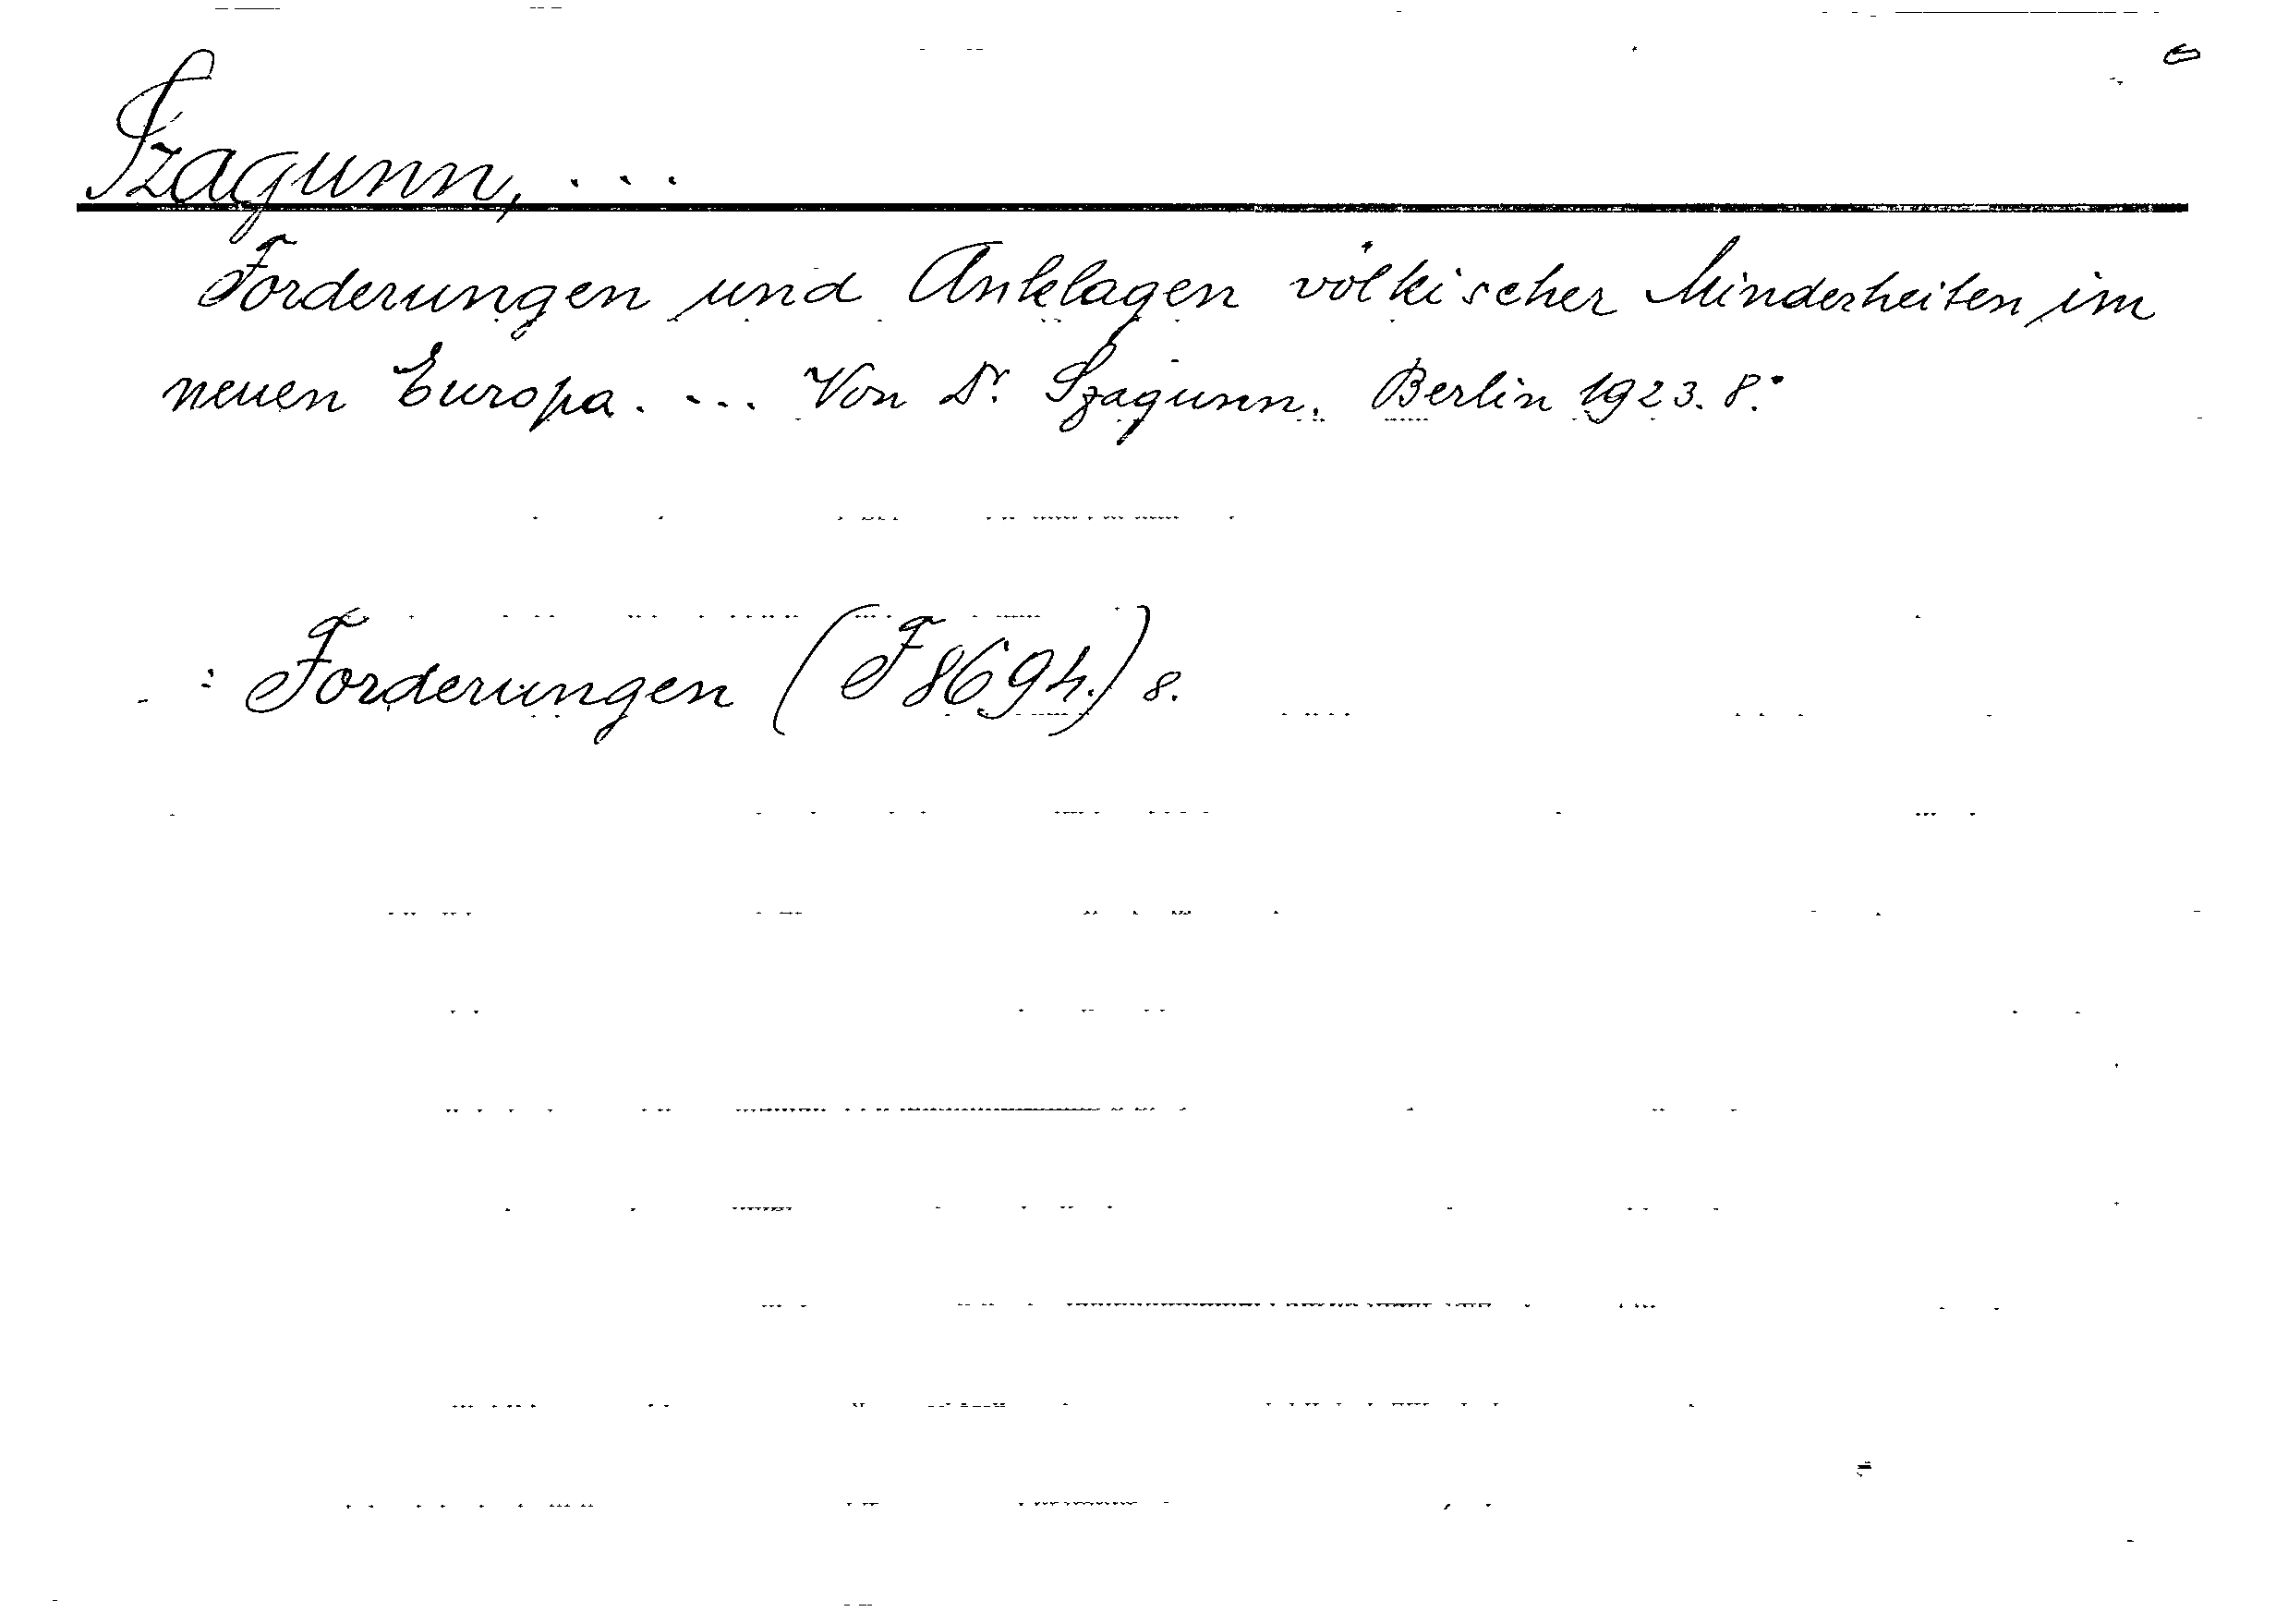 Szagunn, ...
Forderungen und Anklagen völkischer Minderheiten im
neuen Europa. ... Von Dr. Szagunn. Berlin 1923. 8.°
: Forderungen (F 8694.) 8.